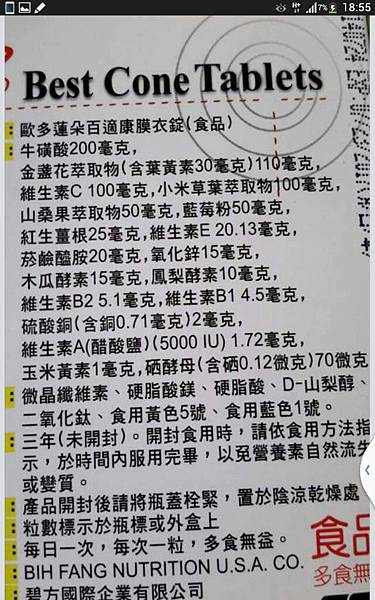 7% 18:55
Best Cone Tablets
歐多蓮朵百適康膜衣錠(食品)
牛磺酸200毫克,
金盞花萃取物(含葉黃素30毫克)110毫克,
維生素C 100毫克,小米草葉萃取物100毫克,
山桑果萃取物50毫克,藍莓粉50毫克,
紅生薑根25毫克,維生素E 20.13毫克,
菸鹼醯胺20毫克,氧化鋅15毫克,
木瓜酵素15毫克,鳳梨酵素10毫克,
維生素B2 5.1毫克,維生素B1 4.5毫克,
硫酸銅(含銅0.71毫克)2毫克,
維生素A(醋酸鹽)(5000 IU) 1.72毫克,
玉米黃素1毫克,硒酵母(含硒0.12微克)70微克
微晶纖維素、硬脂酸鎂、硬脂酸、D-山梨醇、
二氧化鈦、食用黃色5號、食用藍色1號。
三年(未開封)。開封食用時，請依食用方法指
示，於時間內服用完畢，以免營養素自然流失
或變質。
產品開封後請將瓶蓋栓緊，置於陰涼乾燥處
粒數標示於瓶標或外盒上
每日一次，每次一粒，多食無益。
食品
多食無
BIH FANG NUTRITION U.S.A. CO.
碧方國際企業有限公司